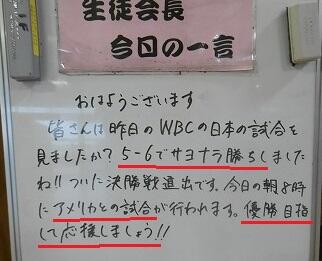 生徒会長
今日の一言
おはようございます
皆さんは昨日のWBCの日本の試合を
見ましたか?5-6でサヨナラ勝ちしました
ね!!ついに決勝戦進出です。今日の朝8時
にアメリカとの試合が行われます。優勝目指
して応援しましょう!!